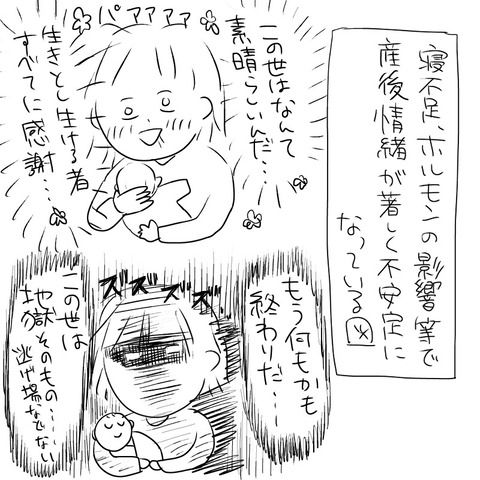 寝不足、ホルモンの影響等で
産後情緒が著しく不安定に
なっている図
パァァァァ
この世はなんて
素晴らしいんだ…
生きとし生ける者
すべてに感謝…
ズズズズ
もう何もかも
終わりだ…
この世は
地獄そのもの…
逃げ場などない